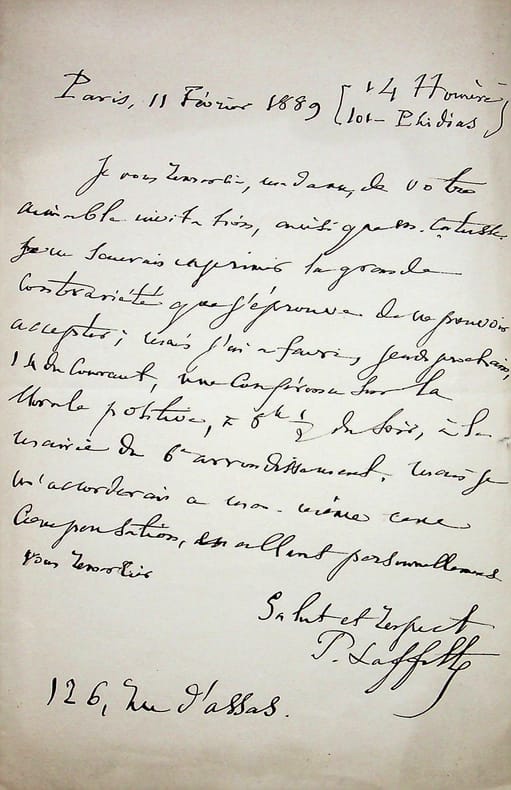 Paris, 11 Février 1889 [14 Homère
101 - Phidias]
Je vous remercie, madame, de votre
aimable invitation, ainsi que m.
Je ne saurais exprimer la grande
contrariété que j'éprouve de ne pouvoir
accepter; mais j'ai à faire, jeudi prochain,
14 du courant, une Conférence sur la
Morale positive, à 8h 1/2 du soir, à la
mairie du 6e arrondissement. mais je
m'accorderais à moi-même une
Compensation, en allant personnellement
vous remercier
Salut et respect
P. Laffitte
126, rue d'assas.